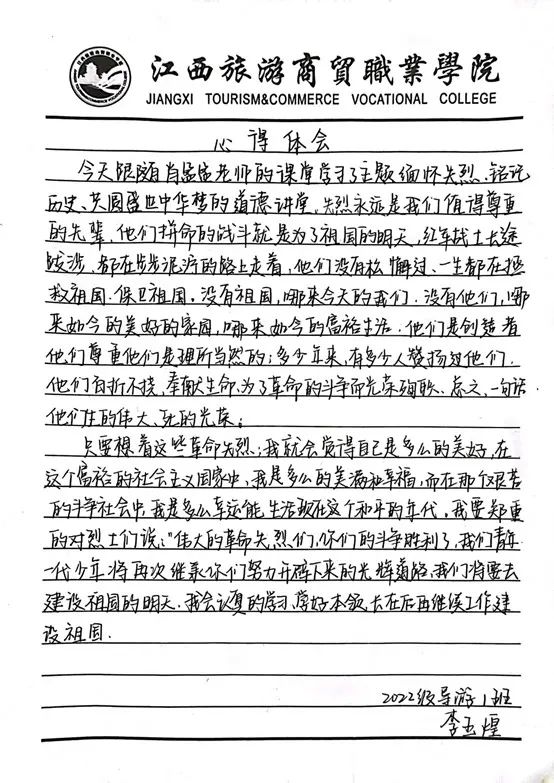 江西旅游商贸職業學院
JIANGXI TOURISM&COMMERCE VOCATIONAL COLLEGE
心得体会
今天跟随肖盛盛老师的课堂学习了主题缅怀先烈、铭记
历史、共圆盛世中华梦的道德讲堂,先烈永远是我们值得尊重
的先辈,他们拼命的战斗就是为了祖国的明天,红军战士长途
跋涉,都在步步泥泞的路上走着,他们没有松懈过、一生都在拯
救祖国.保卫祖国,没有祖国,哪来今天的我们.没有他们,哪
来如今的美好的家园,哪来如今的富裕生活.他们是创造者
他们尊重他们是理所当然的;多少年来,有多少人赞扬过他们.
他们百折不挠,奉献生命,为了革命的斗争而光荣殉职.总之,一句话
他们生的伟大、死的光荣;
只要想着这些革命先烈;我就会觉得自己是多么的美好,在
这个富裕的社会主义国家中,我是多么的美满和幸福,而在那个艰苦
的斗争社会中,我是多么幸运能生活现在这个和平的年代,我要郑重
的对烈士们说:"伟大的革命先烈们,你们的斗争胜利了,我们青年
一代少年将再次继承你们努力开辟下来的光辉道路,我们将要去
建设祖国的明天.我会认真的学习,学好本领,去在后再继续工作建
设祖国.
2022级导游1班
李玉煌